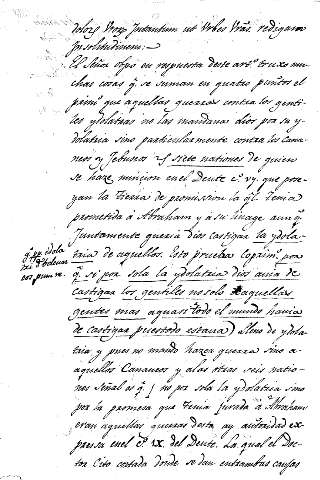 dolores Vros Intantum ut Urbes Vras redigam
Insolitudinem.
El Señor obpo en respuesta deste arto truxo mu
chas coras q. se suman en quatro puntos el
primo que aquellas guerras contra los genti
les ydolatras no las mandava dios por su y
dolatria sino particularmente contra los Cana
neos y Jebuseos y siete nationes de quien
se haze mincion en el Deute co vij que pose
yan la tierra de promission la ql tenia
prometida á Abraham y á su linage aunq.
Juntamente queria dios castigar la ydola
tria de aquellos. Esto prueba Copiom. por
q. si por sola la ydolatria dios avia de
castigar los gentiles no solo aquellas
gentes mas aquasi todo el mundo havia
de castigar pues todo estava lleno de ydola
tria y pues no mando hazer guerra sino a
aquellos Cananeos y a las otras seis natio
nes señal es q. no por sola la ydolatria sino
por la promesa que tenia jurada á Abraham
eran aquellas guerras desta ay autoridad ex
pressa en el co. ix. del Deute. La qual el Doc
tor cito cortada donde se dan entrambas causas